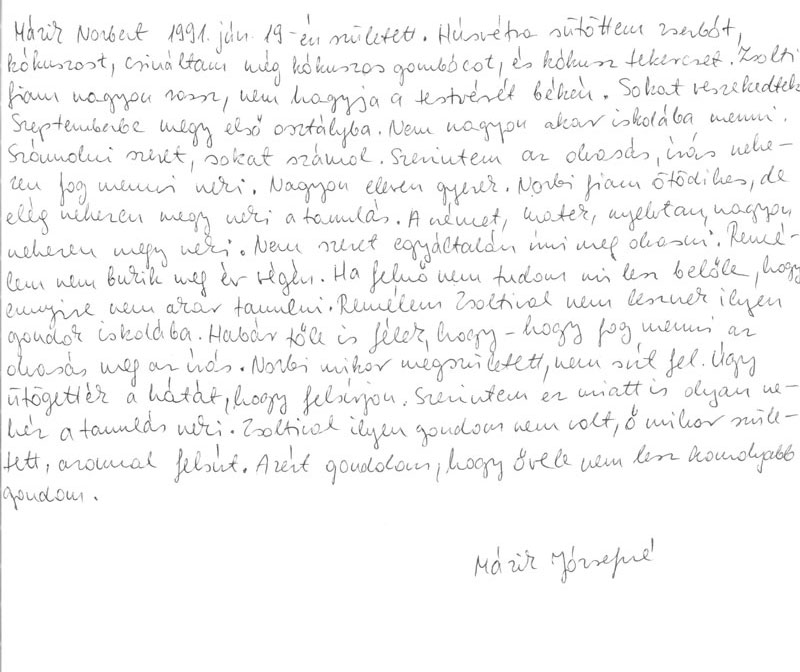 Mázik Norbert 1991. ján. 19-én született. Húsvétra sütöttem zserbót,
kókuszost, csináltam még kókuszos gombócot, és kókusz tekercset. Zsolti
fiam nagyon rossz, nem hagyja a testvérét békén. Sokat veszekedtek
Szeptemberbe megy első osztályba. Nem nagyon akar iskolába menni.
Számolni szeret, sokat számol. Szerintem az olvasás, írás nehe-
zen fog menni neki. Nagyon eleven gyerek. Norbi fiam ötödikes, de
elég nehezen megy neki a tanulás. A német, matek, nyelvtan, nagyon
nehezen megy neki. Nem szeret egyáltalán írni meg olvasni. Remé-
lem nem bukik meg év végén. Ha felnő nem tudom mi lesz belőle, hogy
ennyire nem akar tanulni. Remélem Zsoltival nem lesznek ilyen
gondok iskolába. Habár tőle is félek, hogy - hogy fog menni az
olvasás meg az írás. Norbi mikor megszületett, nem sírt fel. Úgy
ütögették a hátát, hogy felsírjon. Szerintem ez miatt is olyan ne-
héz a tanulás neki. Zsoltival ilyen gondom nem volt, ő mikor szüle-
tett, azonnal felsírt. Azért gondolom, hogy ővele nem lesz komolyabb
gondom.
Mázik Józsefné